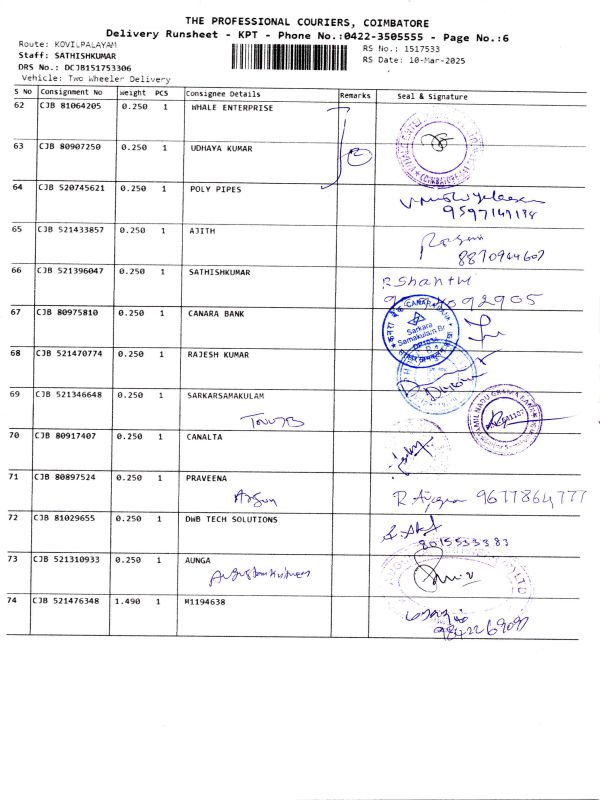 THE PROFESSIONAL COURIERS, COIMBATORE
Delivery Runsheet - KPT - Phone No.:0422-3505555 - Page No.:6
Route: KOVILPALAYAM
RS No.: 1517533
Staff: SATHISHKUMAR
RS Date: 10-Mar-2025
DRS No.: DCJB151753306
Vehicle: Two Wheeler Delivery
S No Consignment No Weight PCS Consignee Details Remarks Seal & Signature
62 CJB 81064205 0.250 1 WHALE ENTERPRISE
63 CJB 80907250 0.250 1 UDHAYA KUMAR
2
64 CJB 520745621 0.250 1 POLY PIPES
65 CJB 521433857 0.250 1 AJITH
8870944607
66 CJB 521396047 0.250 1 SATHISHKUMAR
R Shanthi
67 CJB 80975810 0.250 1 CANARA BANK
CANARA BANK
Sarkara
Samakulam Br
68 CJB 521470774 0.250 1 RAJESH KUMAR
69 CJB 521346648 0.250 1 SARKARSAMAKULAM
TAMIL NADU GRAMA BANK
70 CJB 80917407 0.250 1 CANALTA
71 CJB 80897524 0.250 1 PRAVEENA
9677864777
72 CJB 81029655 0.250 1 DWB TECH SOLUTIONS
8015533383
73 CJB 521310933 0.250 1 AUNGA
74 CJB 521476348 1.490 1 M1194638